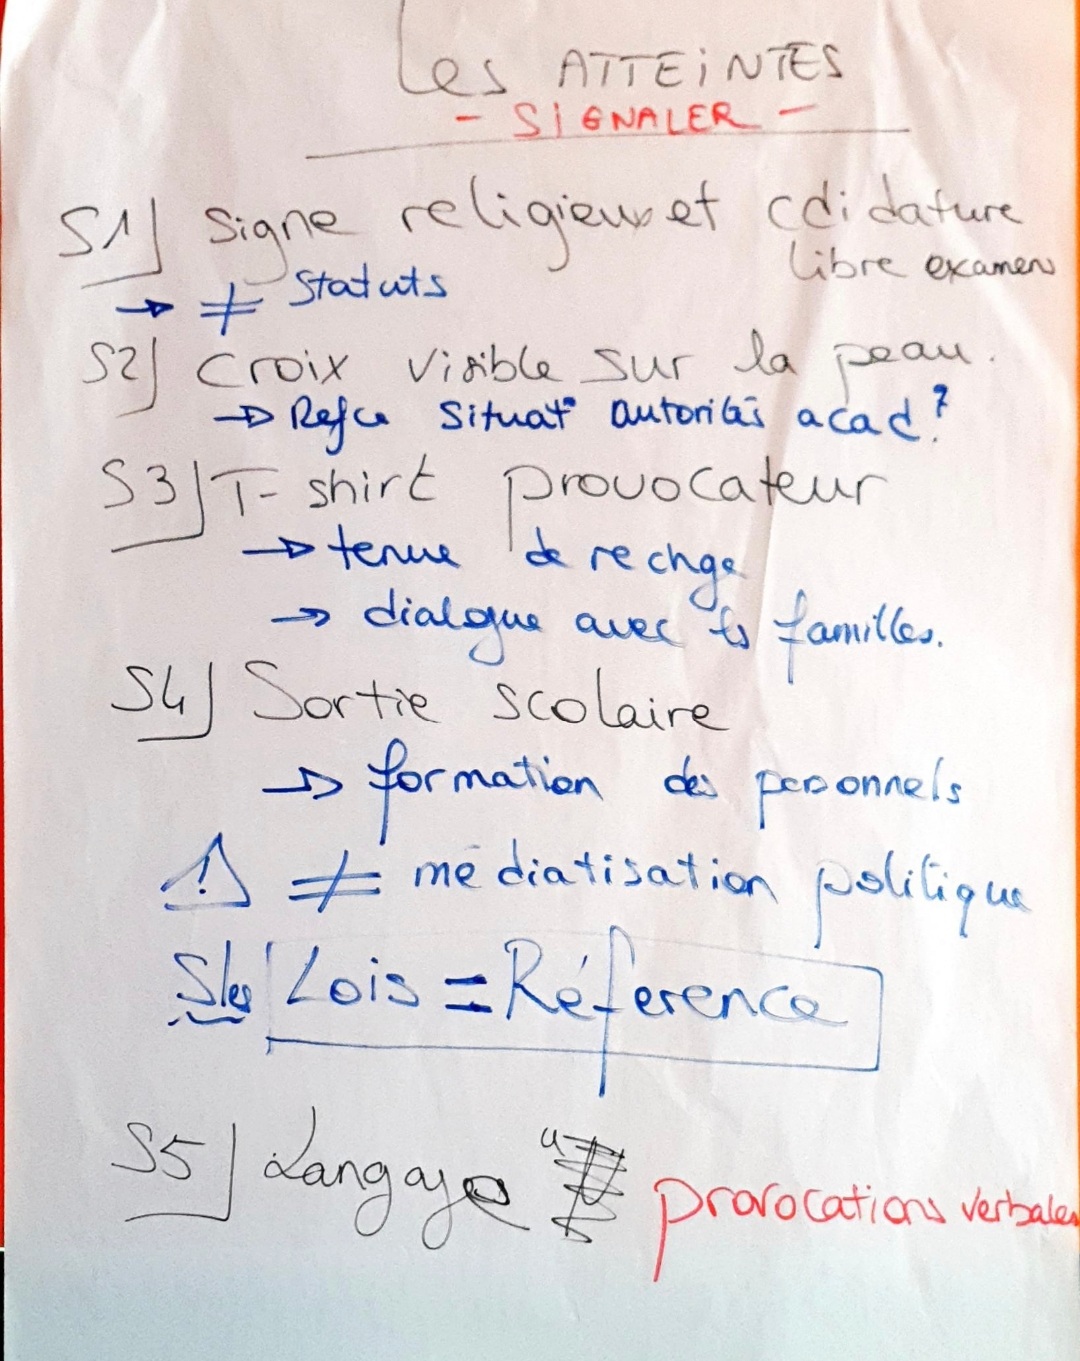 Les ATTEiNTES
- SiGNALER -
S1] Signe religieux et cdidature
libre examen
→ ≠ Statuts
S2] Croix visible sur la peau.
→ Refce Situat° autorités acad?
S3] T-shirt provocateur
→ tenue de rechge
→ dialogue avec ls familles.
S4] Sortie scolaire
→ formation des personnels
⚠ ≠ médiatisation politique
Sles Lois = Référence
S5] Langage " provocations verbales